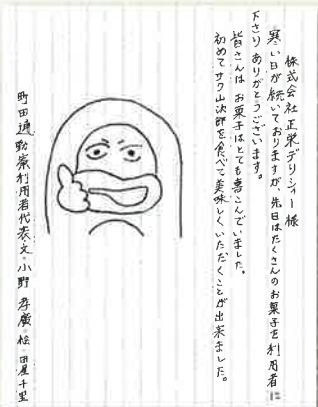 株式会社正栄デリシィー様
寒い日が続いておりますが、先日はたくさんのお菓子を利用者に
下さりありがとうございます。
皆さんはお菓子はとても喜こんでいました。
初めてサク山次郎を食べて美味しくいただくことが出来ました。
町田通勤寮利用者代表文・小野 孝廣・絵・田屋千里